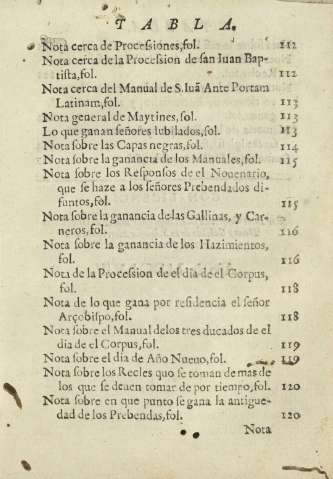 TABLA.
Nota cerca de Processiones, fol. 112
Nota cerca de la Procession de san Iuan Bap-
tista, fol. 112
Nota cerca del Manual de S. Iuã Ante Portam
Latinam, fol. 113
Nota general de Maytines, fol. 113
Lo que ganan señores Iubilados, fol. 113
Nota sobre las Capas negras, fol. 114
Nota sobre la ganancia de los Manuales, fol. 115
Nota sobre los Responsos de el Nouenario,
que se haze a los señores Prebendados di-
funtos, fol. 115
Nota sobre la ganancia de las Gallinas, y Car-
neros, fol. 116
Nota sobre la ganancia de los Hazimientos,
fol. 116
Nota de la Procession de el dia de el Corpus,
fol. 118
Nota de lo que gana por residencia el señor
Arçobispo, fol. 118
Nota sobre el Manual de los tres ducados de el
dia de el Corpus, fol. 119
Nota sobre el dia de Año Nueuo, fol. 119
Nota sobre los Recles que se toman de mas de
los que se deuen tomar de por tiempo, fol. 120
Nota sobre en que punto se gana la antigue-
dad de los Prebendas, fol. 120
Nota